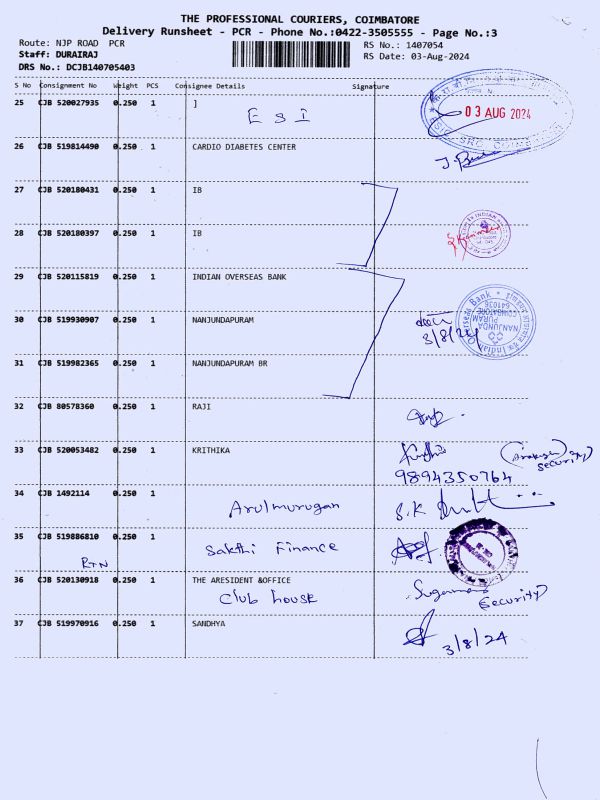 THE PROFESSIONAL COURIERS, COIMBATORE
Delivery Runsheet - PCR - Phone No.:0422-3505555 - Page No.:3
Route: NJP ROAD PCR
RS No.: 1407054
Staff: DURAIRAJ
RS Date: 03-Aug-2024
DRS No.: DCJB140705403
S No Consignment No Weight PCS Consignee Details Signature
25 CJB 520027935 0.250 1 ]
ESI
03 AUG 2024
26 CJB 519814490 0.250 1 CARDIO DIABETES CENTER
27 CJB 520180431 0.250 1 IB
28 CJB 520180397 0.250 1 IB
29 CJB 520115819 0.250 1 INDIAN OVERSEAS BANK
30 CJB 519930907 0.250 1 NANJUNDAPURAM
3/8/24
Indian Overseas Bank
NANJUNDA
PURAM
COIMBATORE
641036
31 CJB 519982365 0.250 1 NANJUNDAPURAM BR
32 CJB 80578360 0.250 1 RAJI
33 CJB 520053482 0.250 1 KRITHIKA
security)
9894350764
34 CJB 1492114 0.250 1
Arulmurugan
35 CJB 519886810 0.250 1
Sakthi Finance
RTN
36 CJB 520130918 0.250 1 THE ARESIDENT &OFFICE
Club house
security)
37 CJB 519970916 0.250 1 SANDHYA
3/8/24